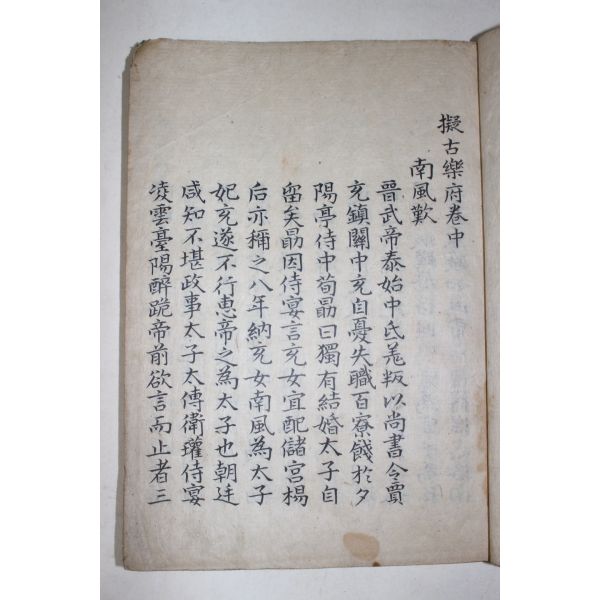 擬古樂府卷中
南風歎
晉武帝泰始中氐羗叛以尚書令賈
充鎮關中充自憂失職百寮餞於夕
陽亭侍中荀勗曰獨有結婚太子自
留矣勗因侍宴言充女宜配儲宮楊
后亦稱之八年納充女南風為太子
妃充遂不行惠帝之為太子也朝廷
咸知不堪政事太子太傅衛瓘侍宴
凌雲臺陽醉跪帝前欲言而止者三